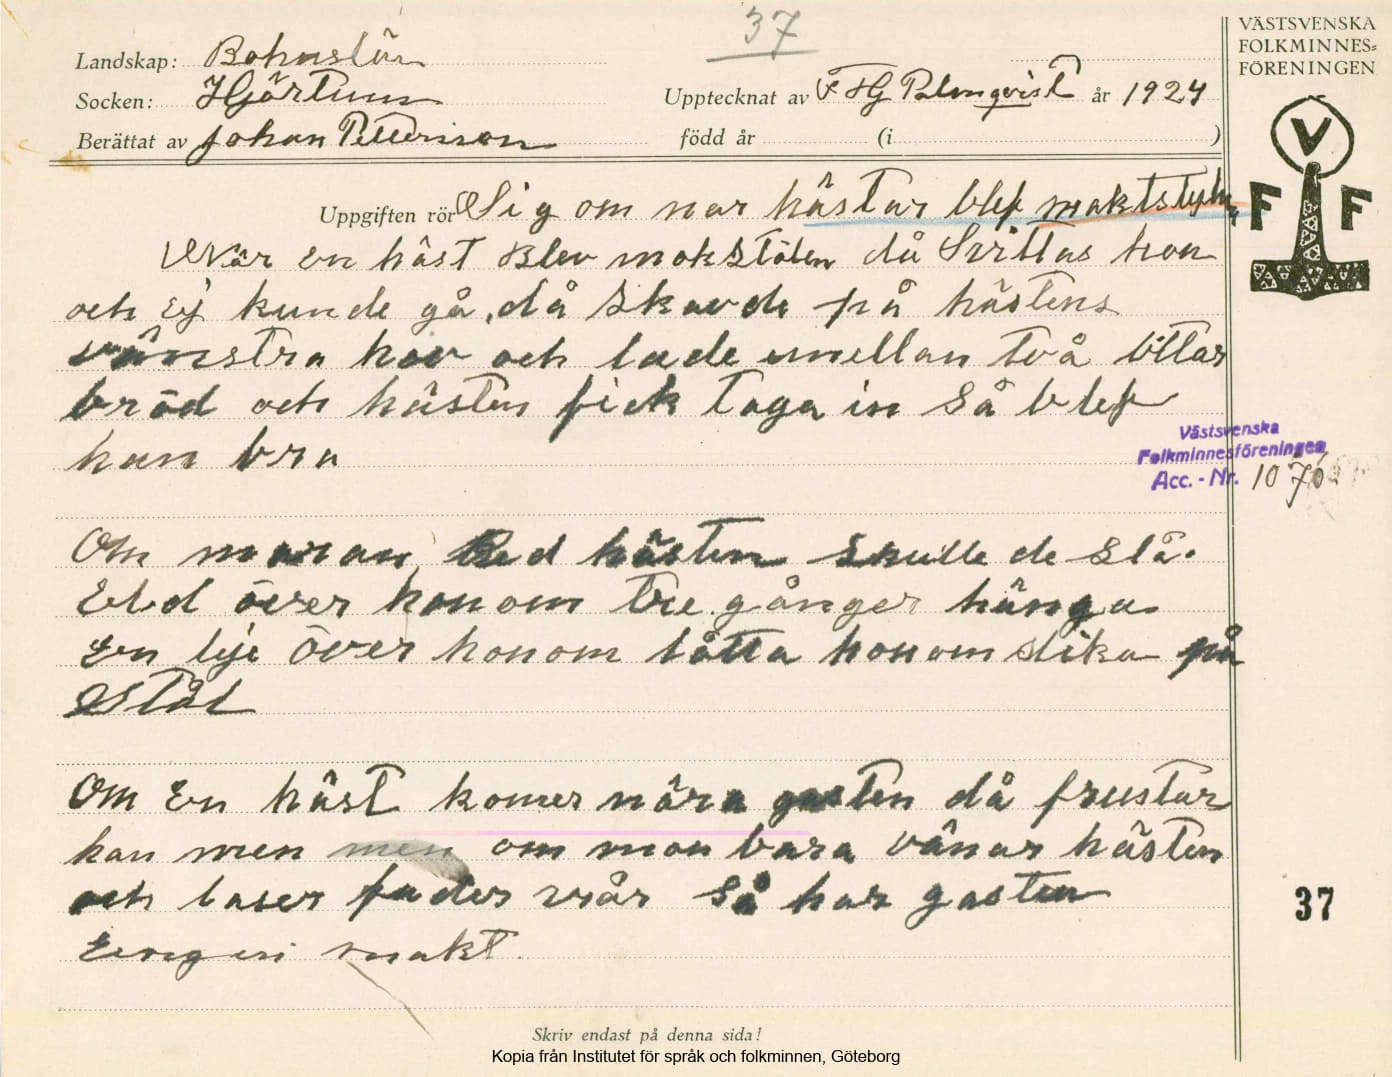 37
VÄSTSVENSKA
FOLKMINNES=
FÖRENINGEN
Landskap: Bohuslän
Socken: Hjärtum
Upptecknat av F HG Palmqvist år 1924
Berättat av Johan Petterson
född år (i )
V
F F
Uppgiften rör Sig om nar hästar blef maktstulen
När en häst Blev makstölen då Svittas hon
och Ej kunde gå, då skavde på hästens
vänstra hov och lade emellan två bitar
bröd och hästen fick taga in Så blef
han bra
Västsvenska
Folkminnesföreningen
Acc. - Nr. 1076
Om maran Red hästen skulle de slå
Eld över honom tre gånger hänga
En lije över honom låtta honom slika på
Stål
Om En häst komer nära gasten då frustar
han men men om man bara vänar hästen
och laser fader vår så har gasten
Eingen makt.
37
Skriv endast på denna sida!
Kopia från Institutet för språk och folkminnen, Göteborg